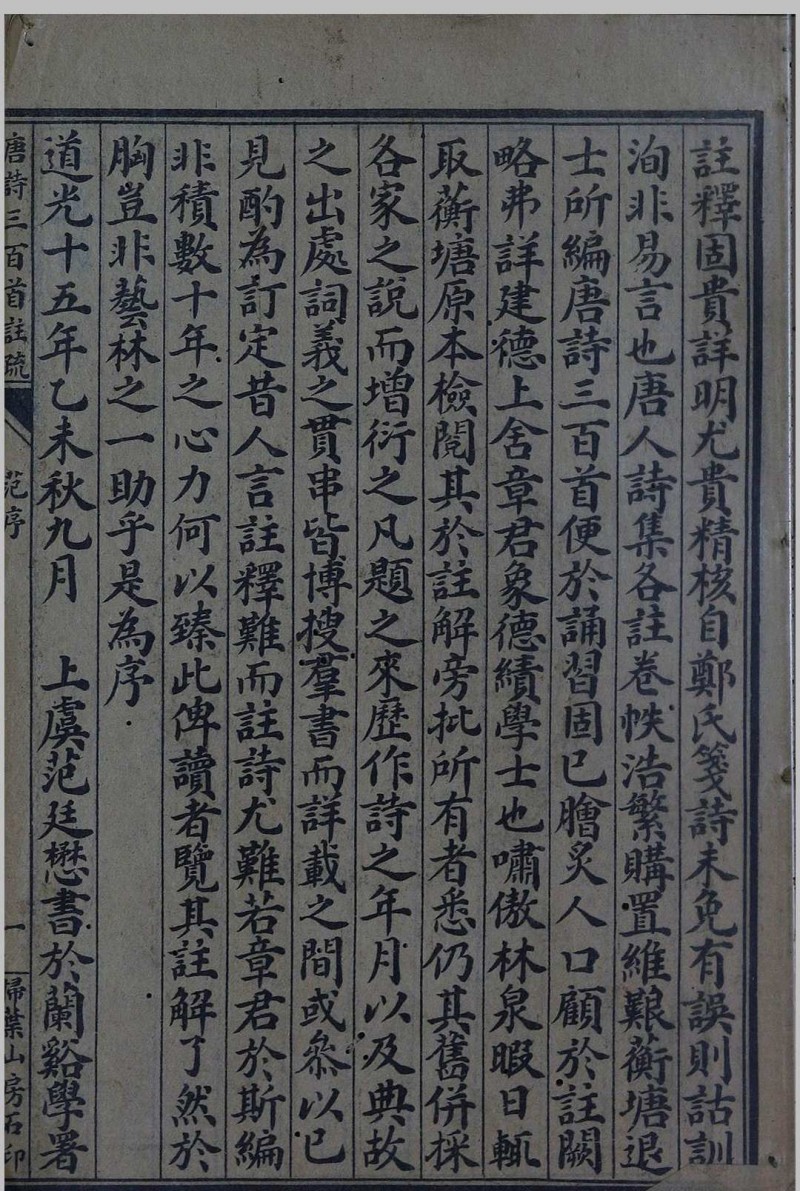 註釋固貴詳明尤貴精核自鄭氏箋詩未免有誤則詁訓
洵非易言也唐人詩集各註卷帙浩繁購置維艱蘅塘退
士所編唐詩三百首便於誦習固已膾炙人口顧於註闕
略弗詳建德上舍章君象德績學士也嘯傲林泉暇日輒
取蘅塘原本檢閱其於註解旁批所有者悉仍其舊併採
各家之說而增衍之凡題之來歷作詩之年月以及典故
之出處詞義之貫串皆博搜羣書而詳載之間或叅以已
見酌為訂定昔人言註釋難而註詩尤難若章君於斯編
非積數十年之心力何以臻此俾讀者覽其註解了然於
胸豈非藝林之一助乎是為序
道光十五年乙未秋九月 上虞范廷懋書於蘭谿學署
唐詩三百首註疏 范序 一 掃葉山房石印